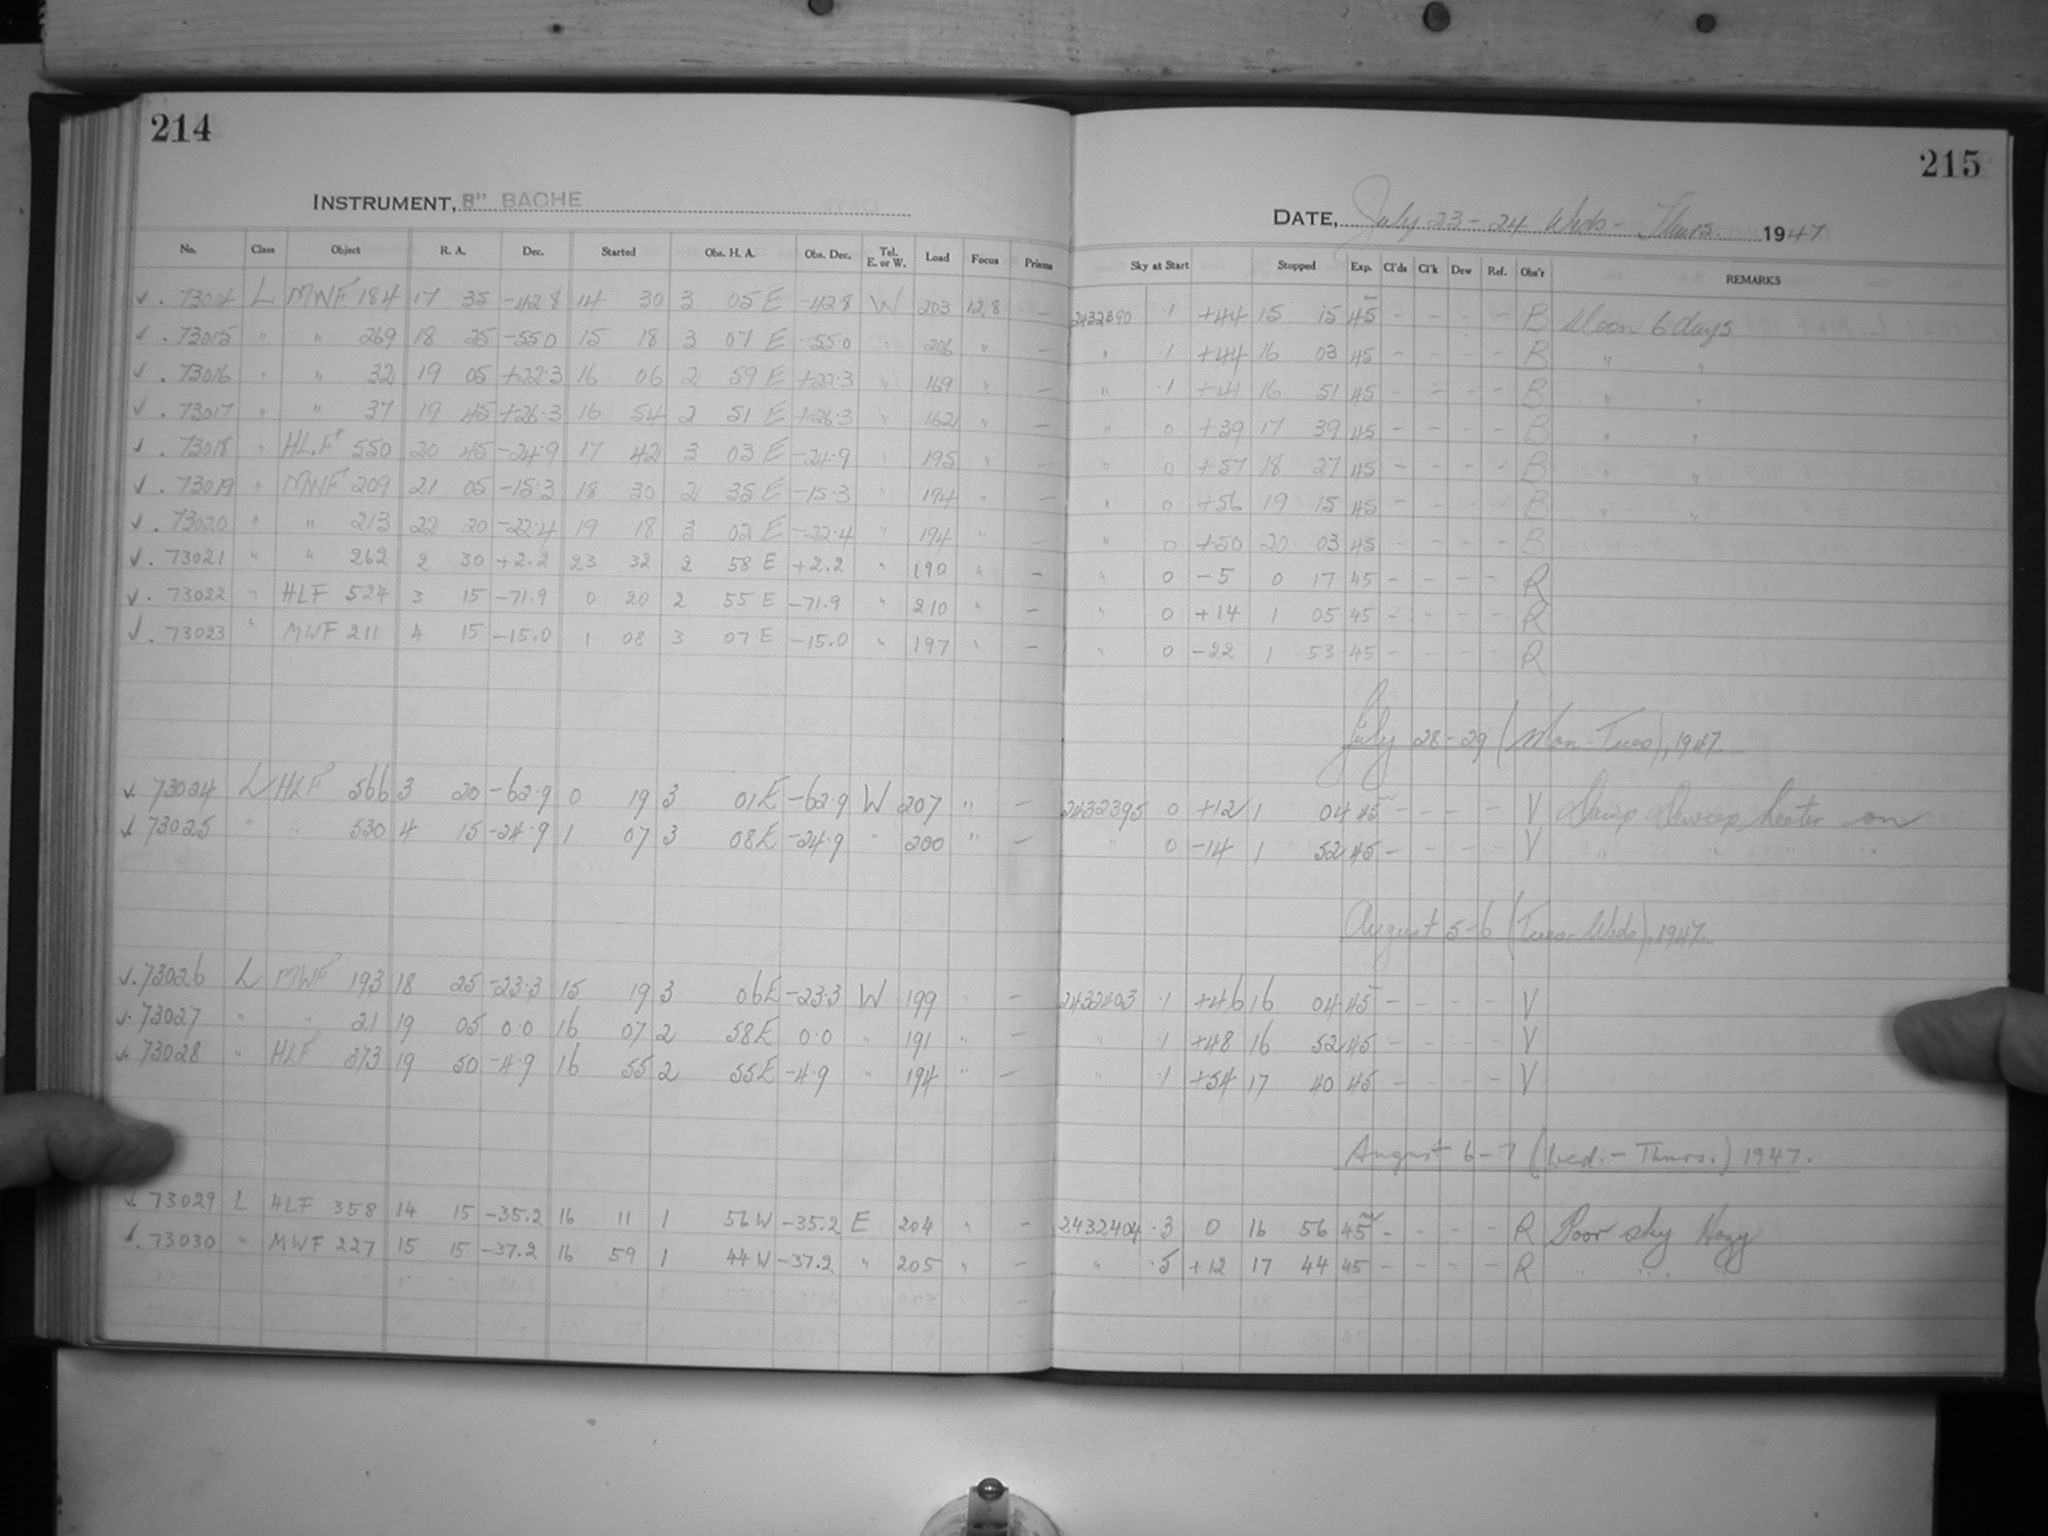 214
INSTRUMENT, 8" BACHE
No. Class Object R. A. Dec. Started Obs. H. A. Obs. Dec. Tel. E. or W. Load Focus Prisms
✓ . 73014 L MWF 184 17 35 -42.8 14 30 3 05 E -42.8 W 203 12.8 –
✓ . 73015 " " 269 18 25 -55.0 15 18 3 07 E -55.0 " 206 " –
✓ . 73016 " " 32 19 05 +22.3 16 06 2 59 E +22.3 " 169 " –
✓ . 73017 " " 37 19 45 +26.3 16 54 2 51 E +26.3 " 162 " –
✓ . 73018 " HLF 550 20 45 -24.9 17 42 3 03 E -24.9 " 195 " –
✓ . 73019 " MWF 209 21 05 -15.3 18 30 2 35 E -15.3 " 194 " –
✓ . 73020 " " 213 22 20 -22.4 19 18 3 02 E -22.4 " 194 " –
✓ . 73021 " " 262 2 30 +2.2 23 32 2 58 E +2.2 " 190 " –
✓ . 73022 " HLF 524 3 15 -71.9 0 20 2 55 E -71.9 " 210 " –
✓ . 73023 " MWF 211 4 15 -15.0 1 08 3 07 E -15.0 " 197 " –
✓. 73024 L HLF 566 3 20 -62.9 0 19 3 01E -62.9 W 207 " –
✓. 73025 " " 530 4 15 -24.9 1 07 3 08E -24.9 " 200 " –
✓. 73026 L MWF 193 18 25 -23.3 15 19 3 06E -23.3 W 199 " –
✓. 73027 " " 21 19 05 0.0 16 07 2 58E 0.0 " 191 " –
✓. 73028 " HLF 373 19 50 -4.9 16 55 2 55E -4.9 " 194 " –
✓. 73029 L HLF 358 14 15 -35.2 16 11 1 56 W -35.2 E 204 " –
✓. 73030 " MWF 227 15 15 -37.2 16 59 1 44 W -37.2 " 205 " –
215
DATE, July 23-24 Weds - Thurs. 1947
Sky at Start Stopped Exp. Cl'ds Cl'k Dew Ref. Obs'r REMARKS
2432390 .1 +44 15 15 45 – – – – B Moon 6 days
" .1 +44 16 03 45 – – – – B " "
" .1 +41 16 51 45 – – – – B " "
" 0 +39 17 39 45 – – – – B " "
" 0 +57 18 27 45 – – – – B " "
" 0 +56 19 15 45 – – – – B " "
" 0 +50 20 03 45 – – – – B
" 0 -5 0 17 45 – – – – R
" 0 +14 1 05 45 – – – – R
" 0 -22 1 53 45 – – – – R
July 28-29 (Mon-Tues), 1947.
2432395 0 +12 1 04 45 – – – – V Damp Dewcap heater on
" 0 -14 1 52 45 – – – – V " " " "
August 5-6 (Tues-Weds), 1947.
2432403 .1 +46 16 04 45 – – – – V
" .1 +48 16 52 45 – – – – V
" .1 +54 17 40 45 – – – – V
August 6-7 (Wed.-Thurs.) 1947.
2432404 .3 0 16 56 45 – – – – R Poor sky Hazy
" .5 +12 17 44 45 – – – – R " " "